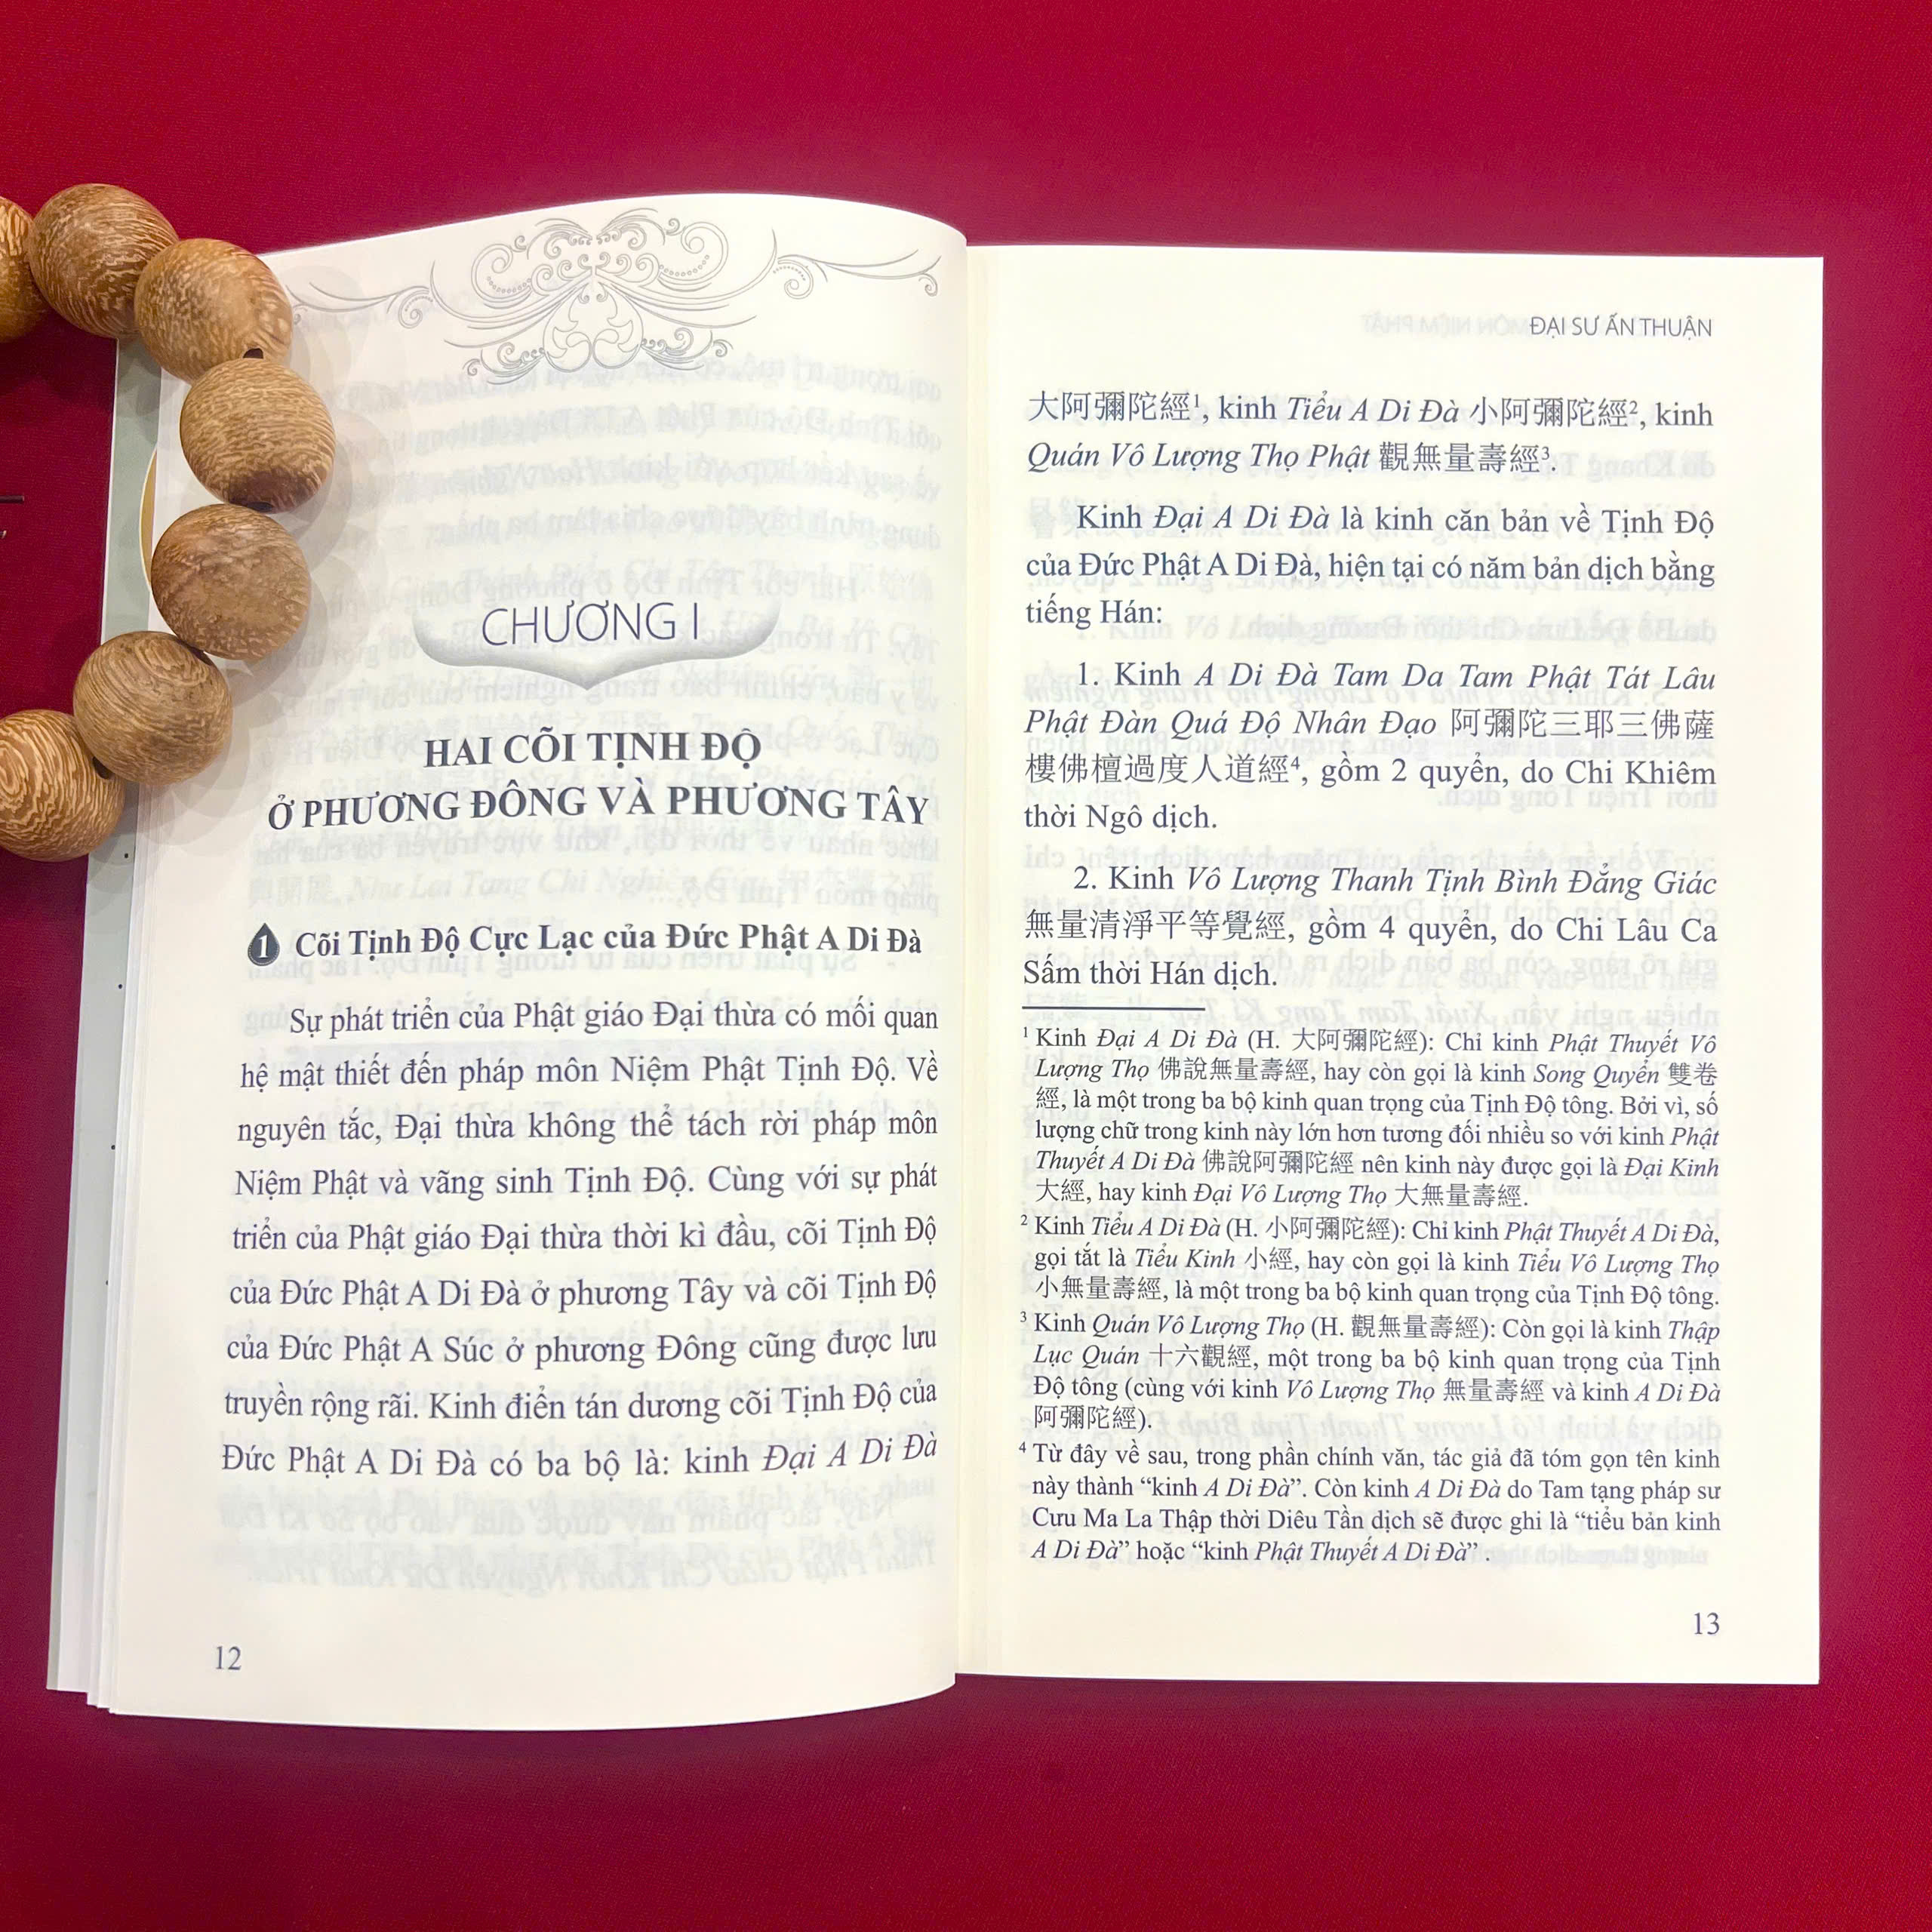 CHƯƠNG I
HAI CÕI TỊNH ĐỘ
Ở PHƯƠNG ĐÔNG VÀ PHƯƠNG TÂY
1 Cõi Tịnh Độ Cực Lạc của Đức Phật A Di Đà
Sự phát triển của Phật giáo Đại thừa có mối quan
hệ mật thiết đến pháp môn Niệm Phật Tịnh Độ. Về
nguyên tắc, Đại thừa không thể tách rời pháp môn
Niệm Phật và vãng sinh Tịnh Độ. Cùng với sự phát
triển của Phật giáo Đại thừa thời kì đầu, cõi Tịnh Độ
của Đức Phật A Di Đà ở phương Tây và cõi Tịnh Độ
của Đức Phật A Súc ở phương Đông cũng được lưu
truyền rộng rãi. Kinh điển tán dương cõi Tịnh Độ của
Đức Phật A Di Đà có ba bộ là: kinh Đại A Di Đà
12
ĐẠI SƯ ẤN THUẬN
大阿彌陀經¹, kinh Tiểu A Di Đà 小阿彌陀經², kinh
Quán Vô Lượng Thọ Phật 觀無量壽經³.
Kinh Đại A Di Đà là kinh căn bản về Tịnh Độ
của Đức Phật A Di Đà, hiện tại có năm bản dịch bằng
tiếng Hán:
1. Kinh A Di Đà Tam Da Tam Phật Tát Lâu
Phật Đàn Quá Độ Nhân Đạo 阿彌陀三耶三佛薩
樓佛檀過度人道經⁴, gồm 2 quyển, do Chi Khiêm
thời Ngô dịch.
2. Kinh Vô Lượng Thanh Tịnh Bình Đẳng Giác
無量清淨平等覺經, gồm 4 quyển, do Chi Lâu Ca
Sấm thời Hán dịch.
¹ Kinh Đại A Di Đà (H. 大阿彌陀經): Chỉ kinh Phật Thuyết Vô
Lượng Thọ 佛說無量壽經, hay còn gọi là kinh Song Quyển 雙卷
經, là một trong ba bộ kinh quan trọng của Tịnh Độ tông. Bởi vì, số
lượng chữ trong kinh này lớn hơn tương đối nhiều so với kinh Phật
Thuyết A Di Đà 佛說阿彌陀經 nên kinh này được gọi là Đại Kinh
大經, hay kinh Đại Vô Lượng Thọ 大無量壽經.
² Kinh Tiểu A Di Đà (H. 小阿彌陀經): Chỉ kinh Phật Thuyết A Di Đà,
gọi tắt là Tiểu Kinh 小經, hay còn gọi là kinh Tiểu Vô Lượng Thọ
小無量壽經, là một trong ba bộ kinh quan trọng của Tịnh Độ tông.
³ Kinh Quán Vô Lượng Thọ (H. 觀無量壽經): Còn gọi là kinh Thập
Lục Quán 十六觀經, một trong ba bộ kinh quan trọng của Tịnh
Độ tông (cùng với kinh Vô Lượng Thọ 無量壽經 và kinh A Di Đà
阿彌陀經).
⁴ Từ đây về sau, trong phần chính văn, tác giả đã tóm gọn tên kinh
này thành “kinh A Di Đà”. Còn kinh A Di Đà do Tam tạng pháp sư
Cưu Ma La Thập thời Diêu Tần dịch sẽ được ghi là “tiểu bản kinh
A Di Đà” hoặc “kinh Phật Thuyết A Di Đà” .
13